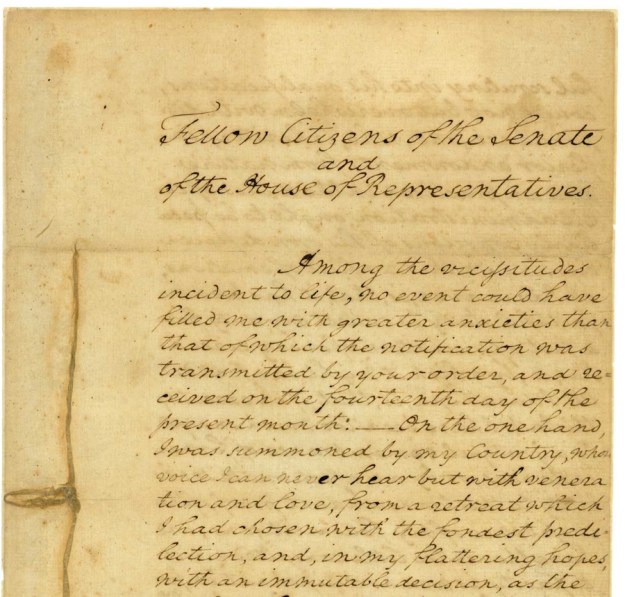 Fellow Citizens of the Senate
and
of the House of Representatives.
Among the vicissitudes
incident to life, no event could have
filled me with greater anxieties than
that of which the notification was
transmitted by your order, and re=
ceived on the fourteenth day of the
present month: — On the one hand,
I was summoned by my Country, whose
voice I can never hear but with venera
tion and love, from a retreat which
I had chosen with the fondest predi-
lection, and, in my flattering hopes,
with an immutable decision, as the